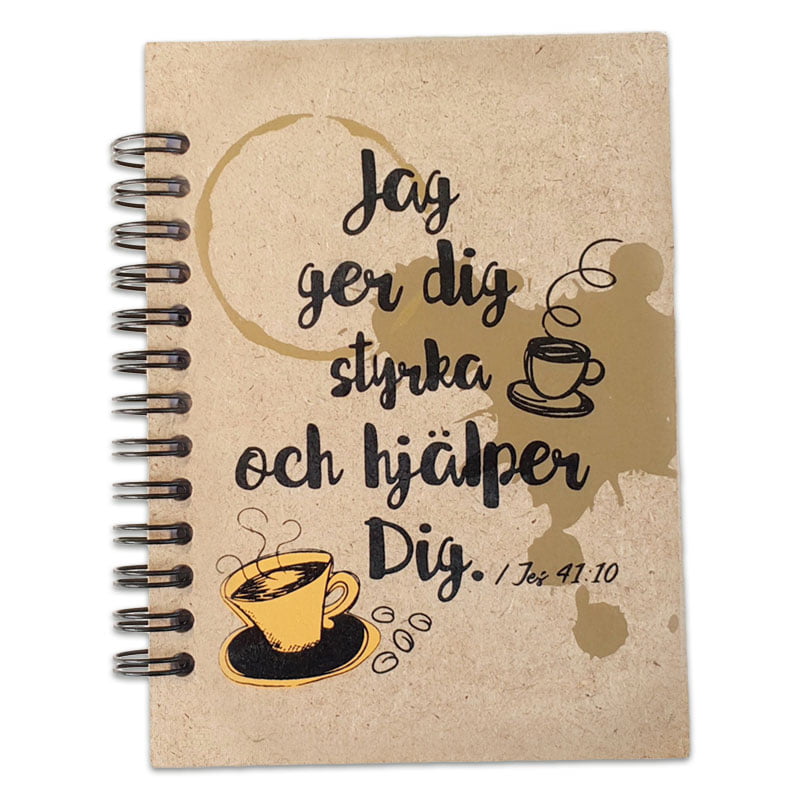 Jag
ger dig
styrka
och hjälper
Dig. / Jes 41:10